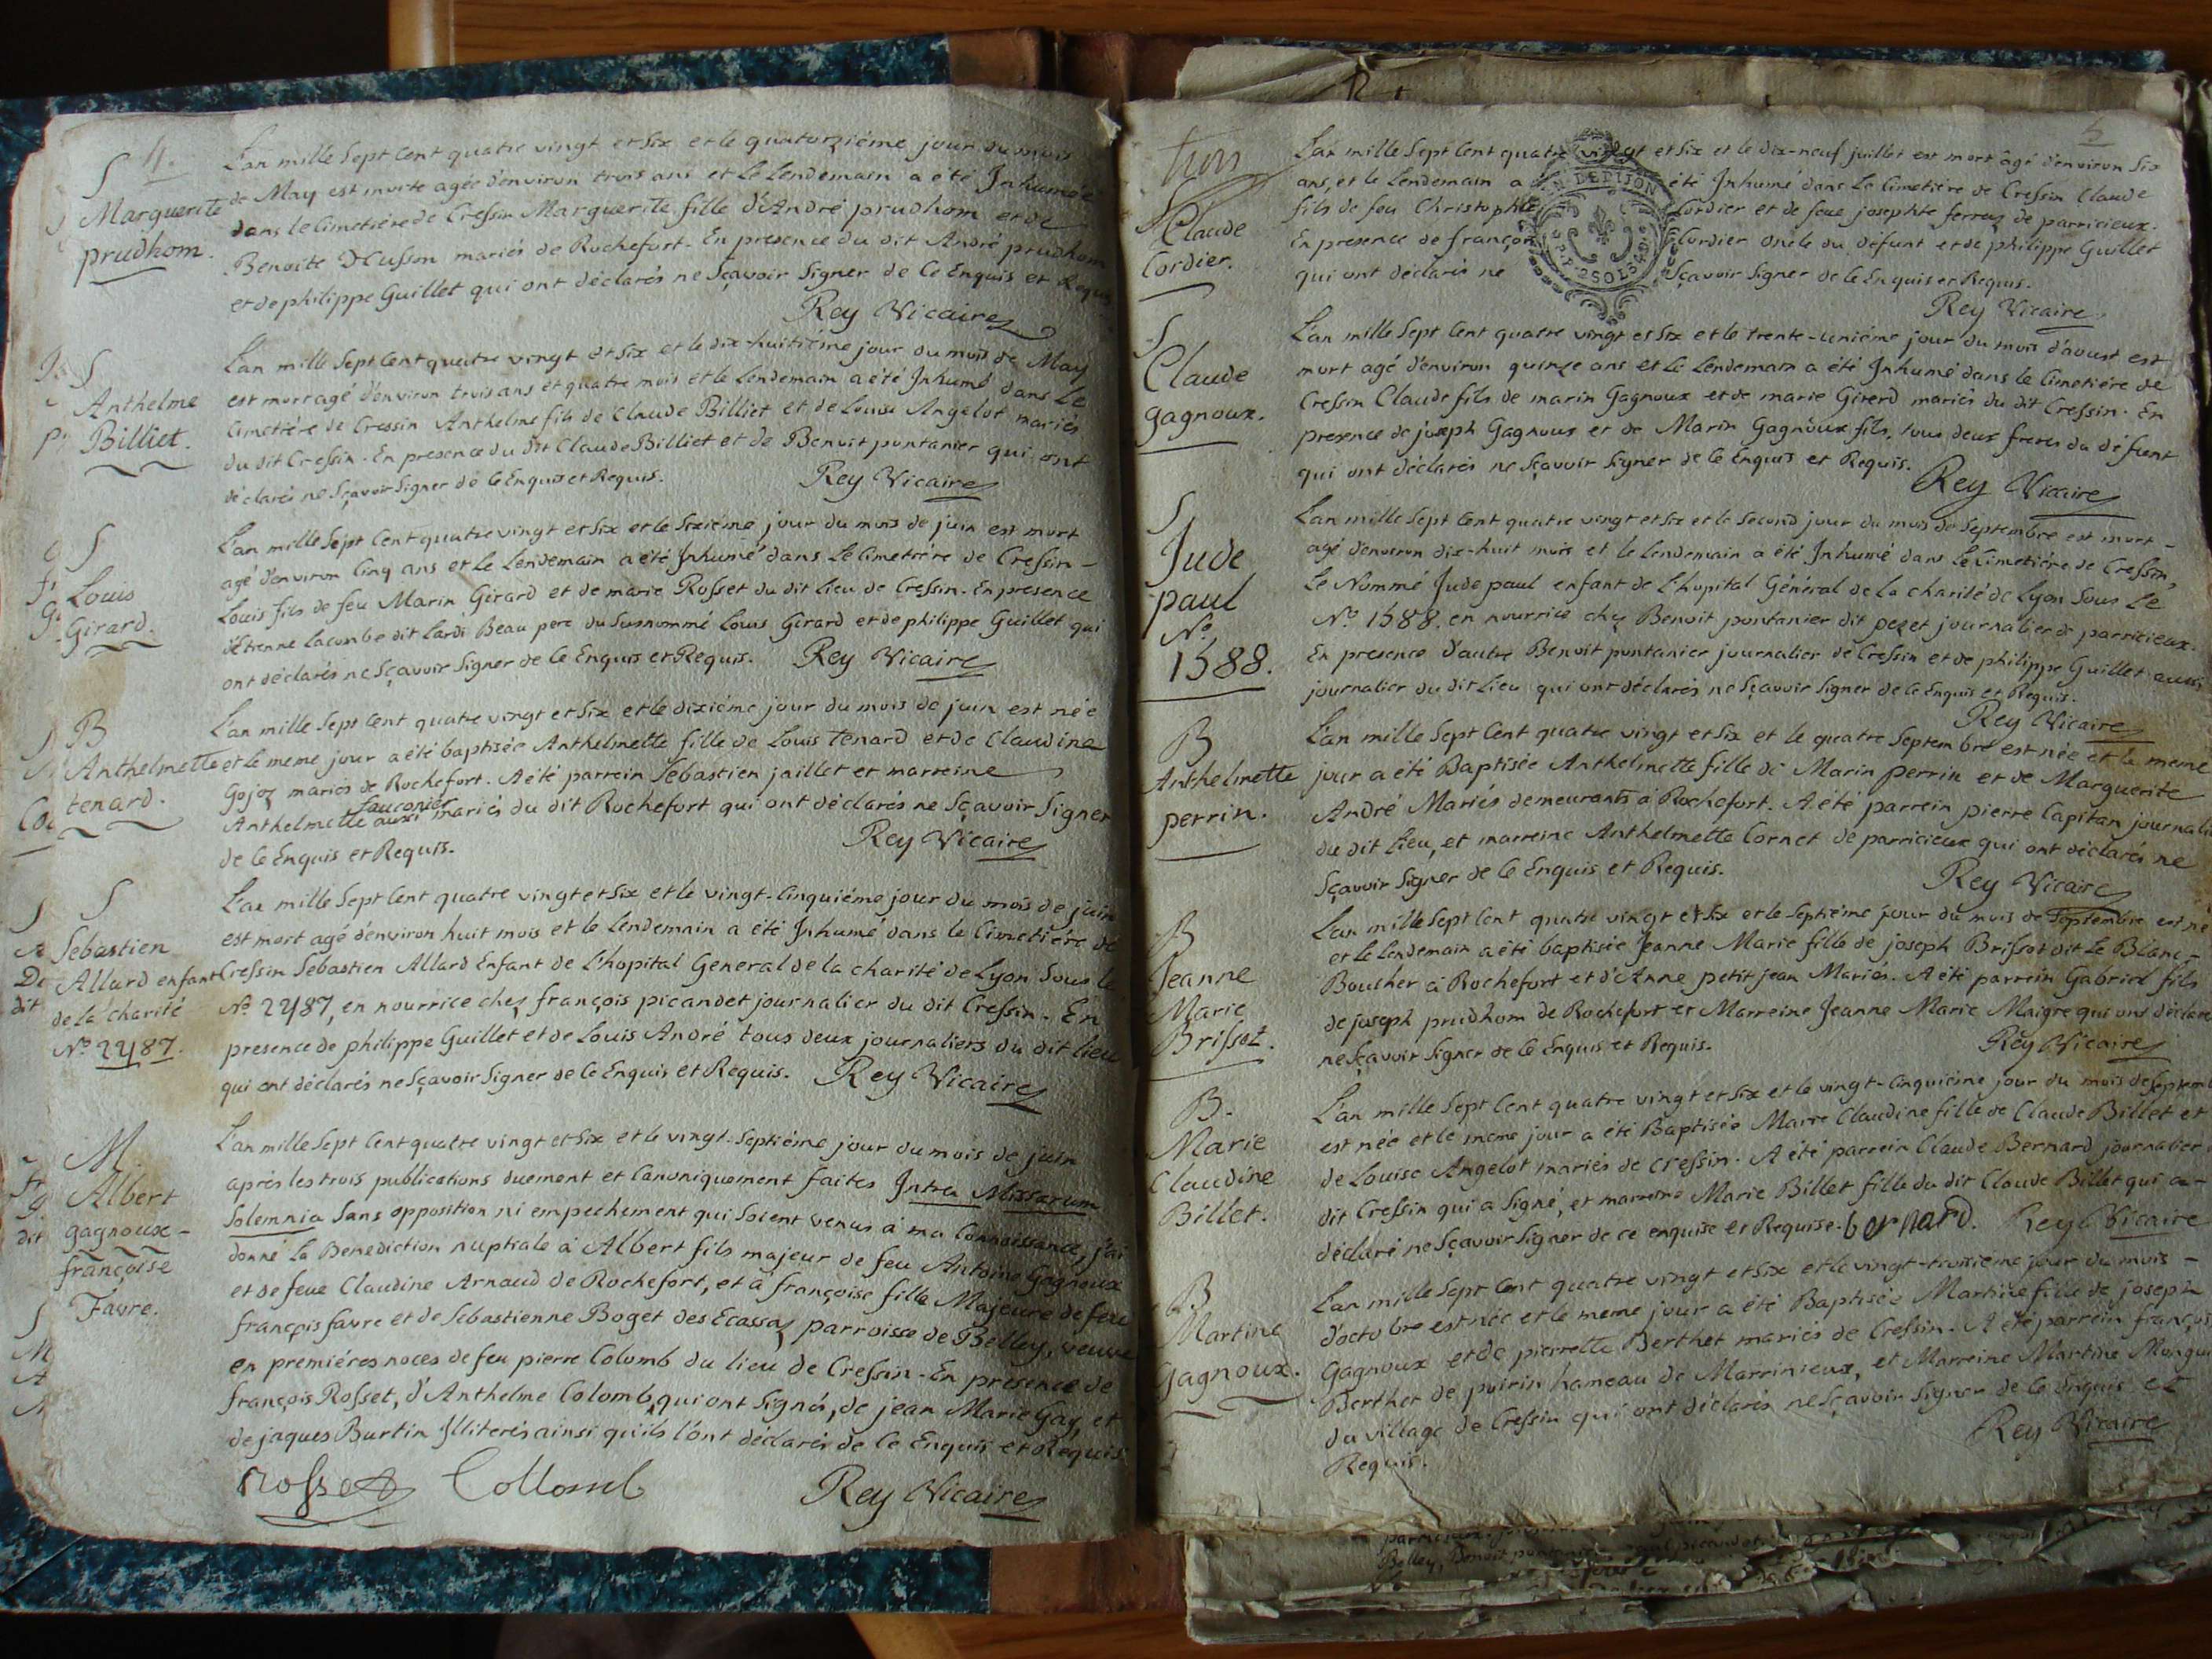 4.
S
Marguerite
prudhom.
L'an mille Sept Cent quatre vingt et Six et le quatorziéme jour du mois
de May est morte agée d'environ trois ans et Le Lendemain a été Inhumée
dans le Cimetiére de Cressin Marguerite fille d'André prudhom et de
Benoite Ducusson mariés de Rochefort. En presence du dit André prudhom
et de philippe Guillet qui ont déclarés ne Sçavoir Signer de Ce Enquis et Requis
Rey Vicaire
S
Anthelme
Billiet.
L'an mille Sept Cent quatre vingt et Six et le dix-huitiéme jour du mois de May
est mort agé d'environ trois ans et quatre mois et le Lendemain a été Inhumé dans Le
Cimetiére de Cressin Anthelme fils de Claude Billiet et de Louise Angelot mariés
du dit Cressin. En presence du dit Claude Billiet et de Benoit pontanier qui ont
déclarés ne Sçavoir Signer de Ce Enquis et Requis.
Rey Vicaire
S
Louis
Girard.
L'an mille Sept Cent quatre vingt et Six et le Sixiéme jour du mois de juin est mort
agé d'environ Cinq ans et Le Lendemain a été Inhumé dans Le Cimetiére de Cressin -
Louis fils de feu Marin Girard et de marie Rosset du dit Lieu de Cressin. En presence
d'Etienne Lacombe dit Lardi Beau pere du Susnommé Louis Girard et de philippe Guillet qui
ont déclarés ne Sçavoir Signer de Ce Enquis et Requis. Rey Vicaire
B
Anthelmette
tenard.
L'an mille Sept Cent quatre vingt et Six et le dixiéme jour du mois de juin est née
et le meme jour a été baptisée Anthelmette fille de Louis tenard et de Claudine
Gojoz mariés de Rochefort. A été parrein Sébastien jaillet et marreine
fauconier
Anthelmette aussi mariés du dit Rochefort qui ont déclarés ne Sçavoir Signer
de Ce Enquis et Requis.
Rey Vicaire
S
Sebastien
Allard enfant
de la charité
No. 2487.
L'an mille Sept Cent quatre vingt et Six et le vingt-Cinquiéme jour du mois de juin
est mort agé d'environ huit mois et le Lendemain a été Inhumé dans le Cimetiére de
Cressin Sebastien Allard Enfant de L'hopital General de la charité de Lyon Sous le
No. 2487, en nourrice chez françois picandet journalier du dit Cressin. En
presence de philippe Guillet et de Louis André tous deux journaliers du dit Lieu
qui ont déclarés ne Sçavoir Signer de Ce Enquis et Requis. Rey Vicaire
M
Albert
gagnoux -
françoise
Favre.
L'an mille Sept Cent quatre vingt et Six et le vingt-Septiéme jour du mois de juin
aprés les trois publications duement et Canoniquement faites Intra Missarum
Solemnia Sans opposition ni empechement qui Soient venus à ma Connoissance, j'ai
donné La Benediction nuptiale à Albert fils majeur de feu Antoine Gagnoux
et de feue Claudine Arnaud de Rochefort, et à françoise fille Majeure de feu
françois favre et de Sébastienne Boget des Ecassaz parroisse de Belley, veuve
en premiéres noces de feu pierre Colomb du lieu de Cressin. En presence de
françois Rosset, d'Anthelme Colomb, qui ont Signés, de jean Marie Gay, et
de jaques Burtin Illiterés ainsi qu'ils l'ont déclarés de Ce Enquis et Requis
Rosset Collomb Rey Vicaire
5
S
Claude
Cordier.
L'an mille Sept Cent quatre vingt et Six et le dix-neuf juillet est mort âgé d'environ Six
ans, et le Lendemain a été Inhumé dans Le Cimetiére de Cressin Claude
fils de feu Christophle Cordier et de feue josephte ferraz de parricieux.
En presence de françois Cordier oncle du défunt et de philippe Guillet
qui ont déclarés ne Sçavoir Signer de Ce Enquis et Requis.
Rey Vicaire
S
Claude
gagnoux.
L'an mille Sept Cent quatre vingt et Six et le trente-uniéme jour du mois d'avust est
mort agé d'environ quinze ans et Le Lendemain a été Inhumé dans le Cimetiére de
Cressin Claude fils de marin Gagnoux et de marie Girerd mariés du dit Cressin. En
presence de joseph Gagnoux et de Marin Gagnoux fils, tous deux freres du défunt
qui ont déclarés ne Sçavoir Signer de Ce Enquis et Requis.
Rey Vicaire
S
Jude
paul
No.
1588.
L'an mille Sept Cent quatre vingt et Six et le Second jour du mois de Septembre est mort -
agé d'environ dix-huit mois et le Lendemain a été Inhumé dans Le Cimetiére de Cressin,
Le Nommé Jude paul enfant de L'hopital Général de la charité de Lyon Sous Le
No. 1588. en nourrice chez Benoit pontanier dit pezet journalier de parricieux.
En presence d'autre Benoit pontanier journalier de Cressin et de philippe Guillet aussi
journalier du dit Lieu qui ont déclarés ne Sçavoir Signer de Ce Enquis et Requis.
Rey Vicaire
B
Anthelmette
perrin.
L'an mille Sept Cent quatre vingt et Six et le quatre Septembre est née et le meme
jour a été Baptisée Anthelmette fille de Marin perrin et de Marguerite
André Mariés demeurants à Rochefort. A été parrein pierre Capitan journalier
du dit Lieu, et marreine Anthelmette Cornet de parricieux qui ont déclarés ne
Sçavoir Signer de Ce Enquis et Requis.
Rey Vicaire
B
Jeanne
Marie
Brissot.
L'an mille Sept Cent quatre vingt et Six et le Septiéme jour du mois de Septembre est né
et Le Lendemain a été baptisée Jeanne Marie fille de joseph Brissot dit Le Blanc -
Boucher à Rochefort et d'Anne petit jean Mariés. A été parrein Gabriel fils
de joseph prudhom de Rochefort et Marreine Jeanne Marie Maigre qui ont déclaré
ne Sçavoir Signer de Ce Enquis et Requis.
Rey Vicaire
B.
Marie
Claudine
Billet.
L'an mille Sept Cent quatre vingt et Six et le vingt-Cinquiéme jour du mois de Septemb
est née et le meme jour a été Baptisée Marie Claudine fille de Claude Billet et
de Louise Angelot mariés de Cressin. A été parrein Claude Bernard journalier
dit Cressin qui a Signé, et marreine Marie Billet fille du dit Claude Billet qui a -
déclaré ne Sçavoir Signer de ce enquise et Requise. bernard. Rey Vicaire
B
Martine
Gagnoux.
L'an mille Sept Cent quatre vingt et Six et le vingt-troisiéme jour du mois -
d'octobre est née et le meme jour a été Baptisée Martine fille de joseph
Gagnoux et de pierrette Berthet mariés de Cressin. A été parrein françois
Berthet de poirin hameau de Marrinieux, et Marreine Martine
du village de Cressin qui ont déclarés ne Sçavoir Signer de Ce Enquis et
Requis.
Rey Vicaire